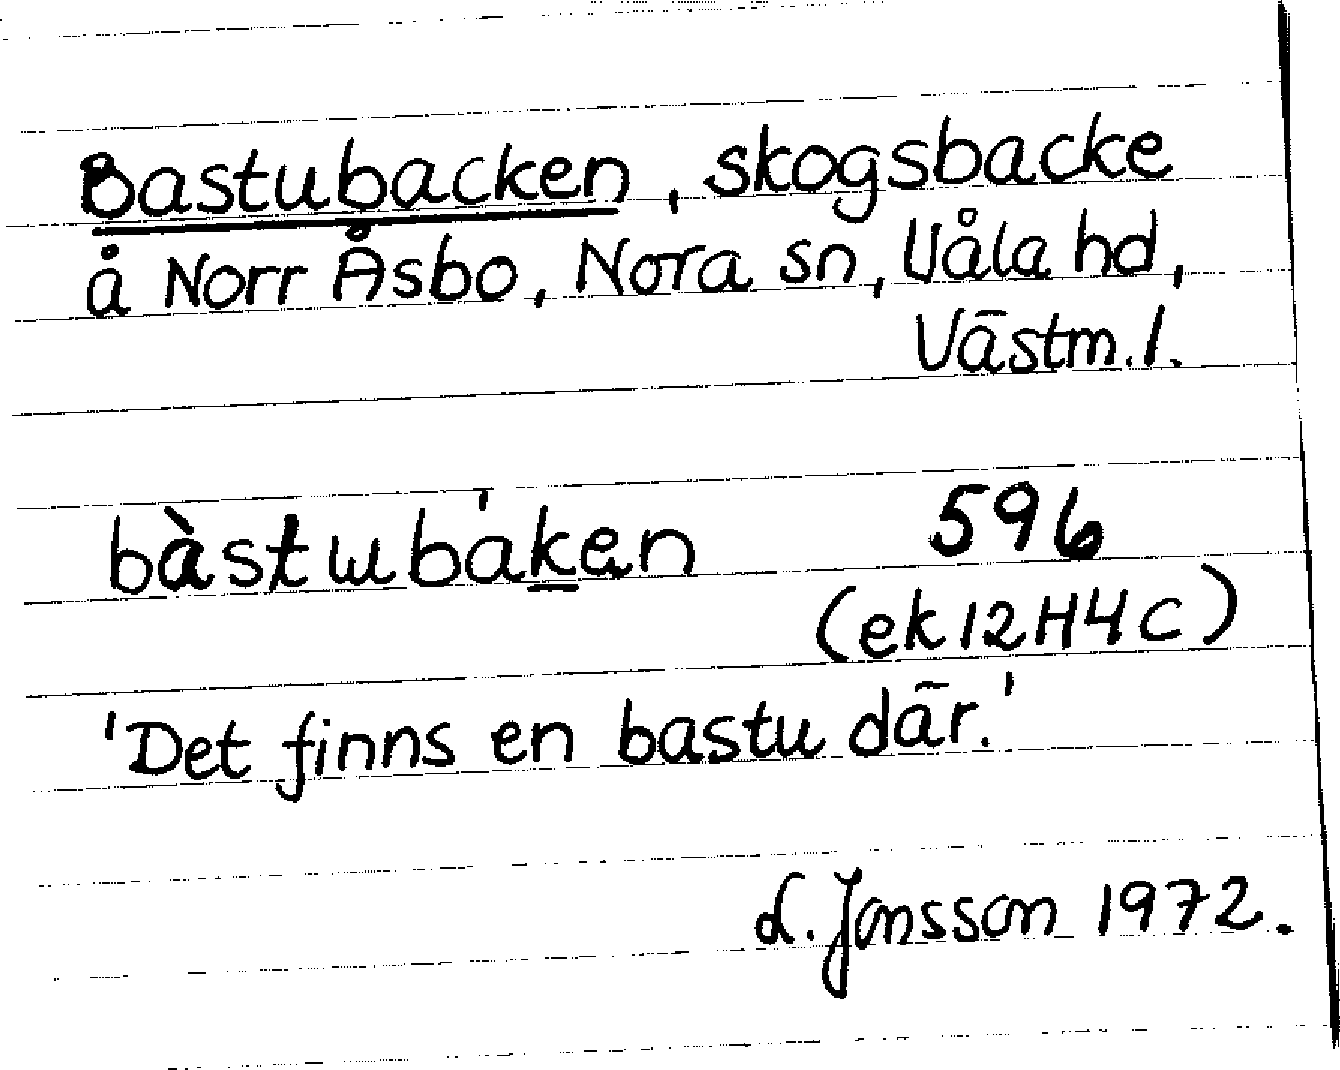 Bastubacken, skogsbacke
å Norr Åsbo, Nora sn, Våla hd,
Västm.l.
bàstɯbáken 596
(ek 12H4C)
'Det finns en bastu där.'
L. Jonsson 1972.